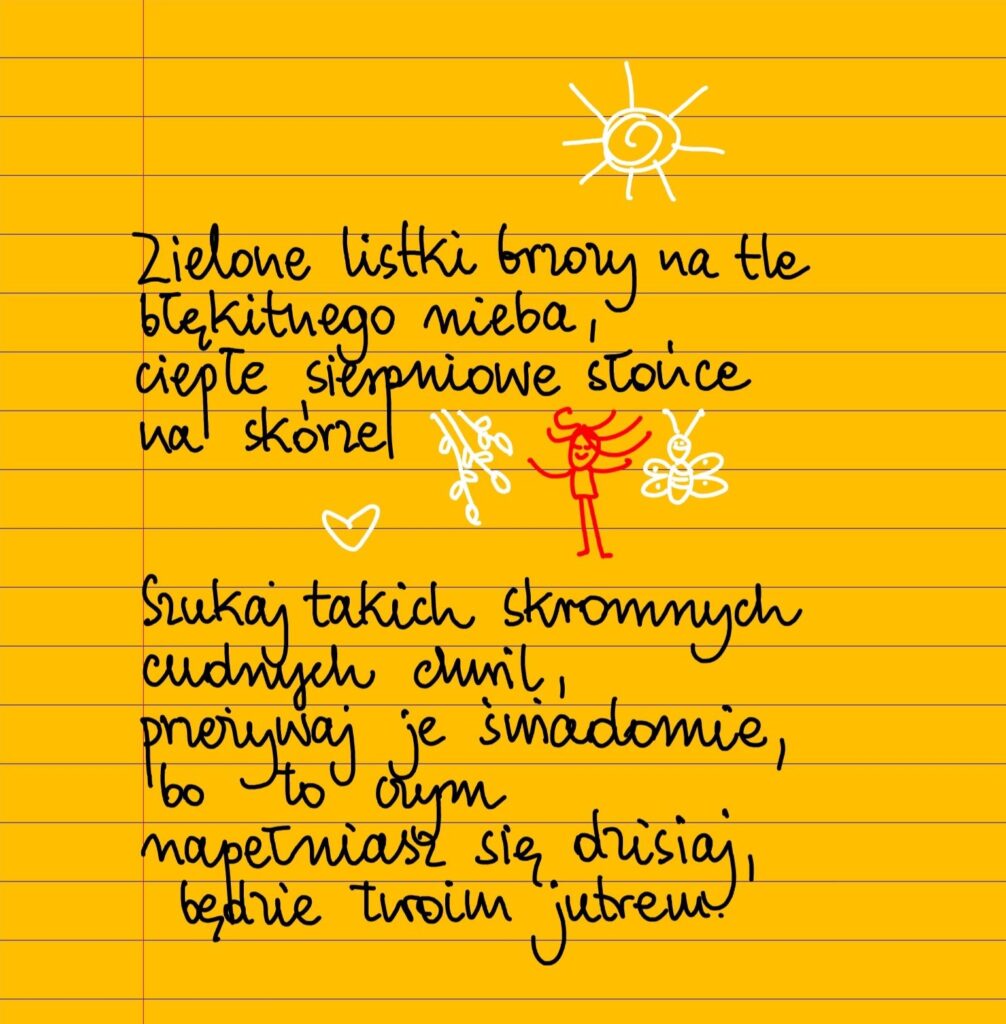 Zielone listki brzozy na tle
błękitnego nieba,
ciepłe sierpniowe słońce
na skórze
Szukaj takich skromnych
cudnych chwil,
przeżywaj je świadomie,
bo to czym
napełniasz się dzisiaj,
będzie twoim jutrem.